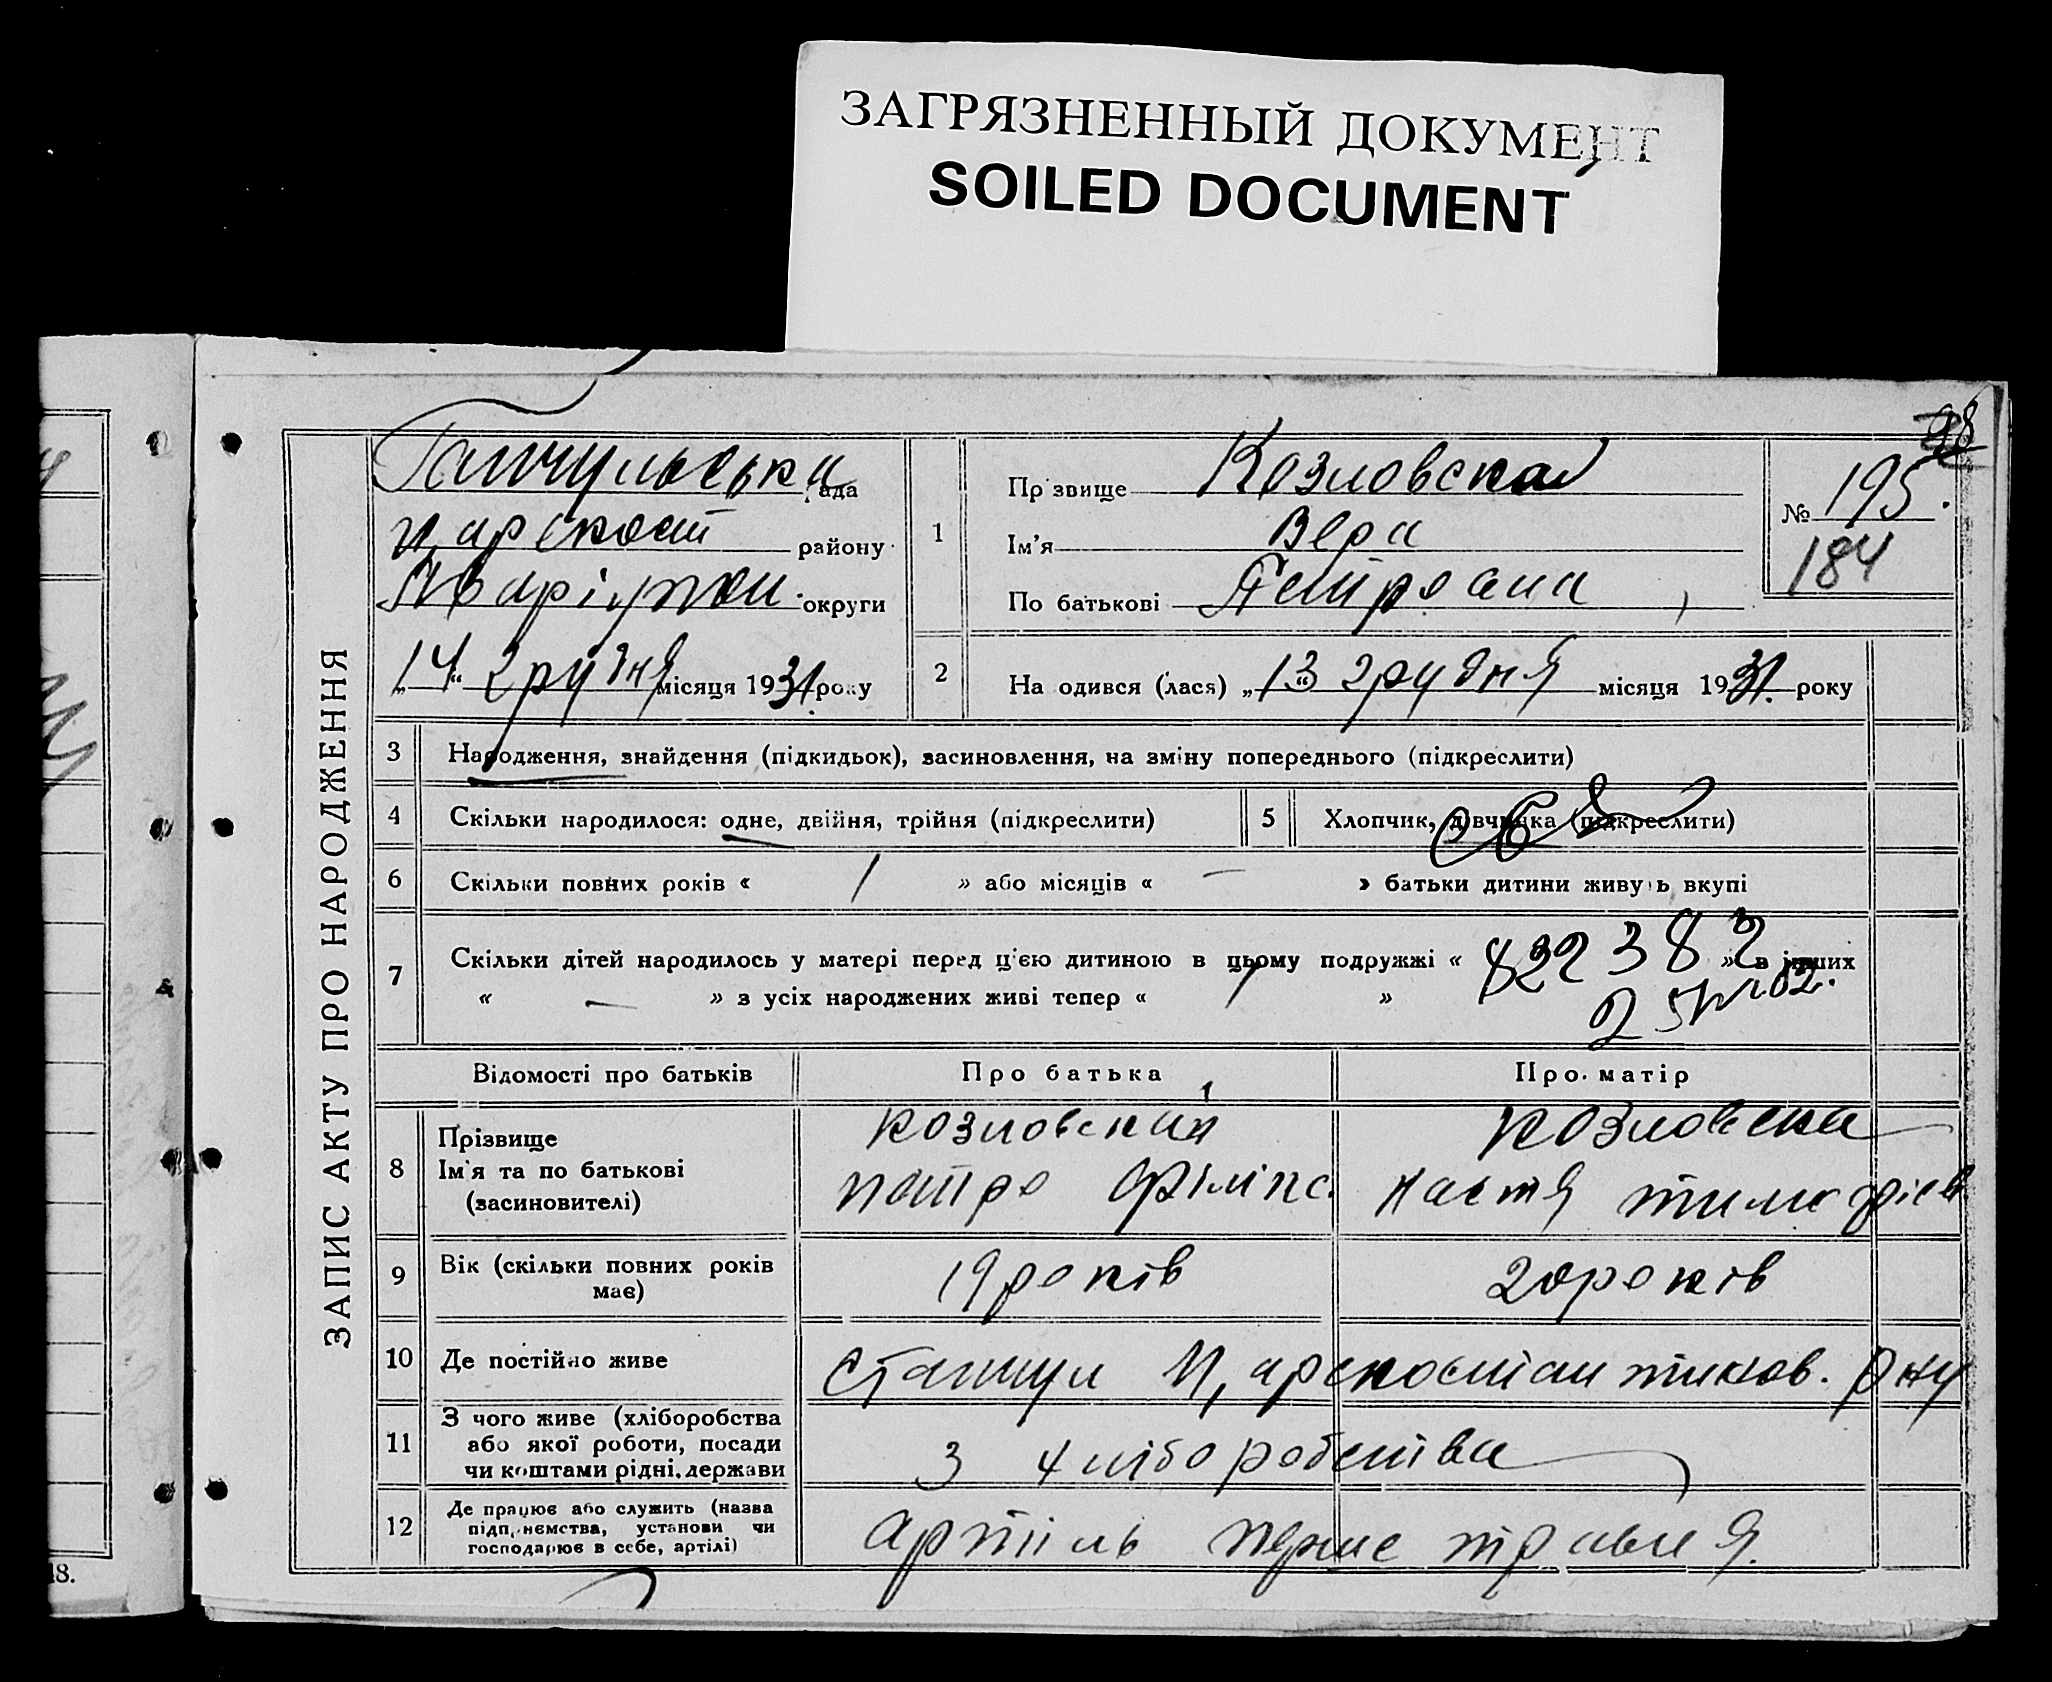 ЗАГРЯЗНЕННЫЙ ДОКУМЕНТ
SOILED DOCUMENT
ЗАПИС АКТУ ПРО НАРОДЖЕННЯ
рада
району
округи
„14“ грудня місяця 1931 року
1
Прізвище Козловская
Ім'я Вера
По батькові Петровна
№ 195.
184
2
На одився (лася) „13“ грудня місяця 1931. року
3 Народження, знайдення (підкидьок), засиновлення, на зміну попереднього (підкреслити)
4 Скільки народилося: одне, двійня, трійня (підкреслити)
5 Хлопчик, дівчинка (підкреслити)
6 Скільки повних років « 1 » або місяців « — » батьки дитини живуть вкупі
7 Скільки дітей народилось у матері перед цією дитиною в цьому подружжі « » в інших
« — » з усіх народжених живі тепер « »
Відомості про батьків
Про батька
Про матір
8 Прізвище
Ім'я та по батькові
(засиновителі)
Козловский
петро Філіпс.
Козловска
Настя
9 Вік (скільки повних років має)
19 років
20 років
10 Де постійно живе
11 З чого живе (хліборобства
або якої роботи, посади
чи коштами рідні, держави
З хліборобства
12 Де працює або служить (назва
підприємства, установи чи
господарює в себе, артілі)
артіль перше травня.
18.